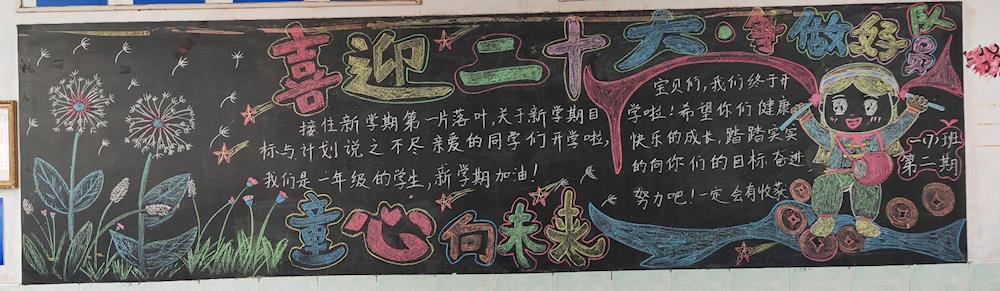 喜迎二十大·争做好队员
接住新学期第一片落叶,关于新学期目
标与计划说之不尽亲爱的同学们开学啦,
我们是一年级的学生,新学期加油!
童心向未来
宝贝们,我们终于开
学啦!希望你们健康
快乐的成长,踏踏实实
的向你们的目标奋进
努力吧!一定会有收获
一(7)班
第二期